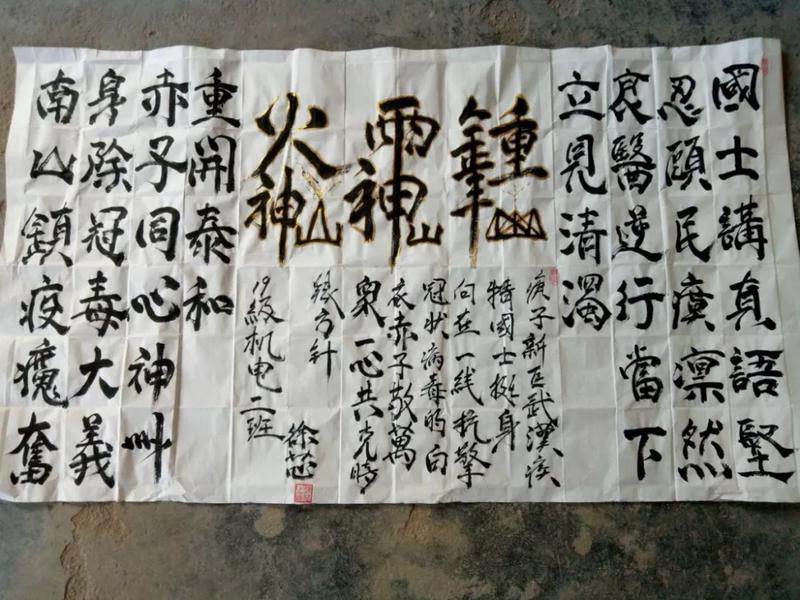 國士講真語堅
忍頤民瘼凛然
哀醫逆行當下
立見清濁
南山鎮疫魔奮
身除冠毒大義
赤子同心神州
重開泰和
鍾山
雨神山
火神山
庚子新正武漢
國士挺身
向在一线抗擊
冠状病毒的白
衣赤子敬萬
衆一心共克時
方针
19级机电二班
徐芯